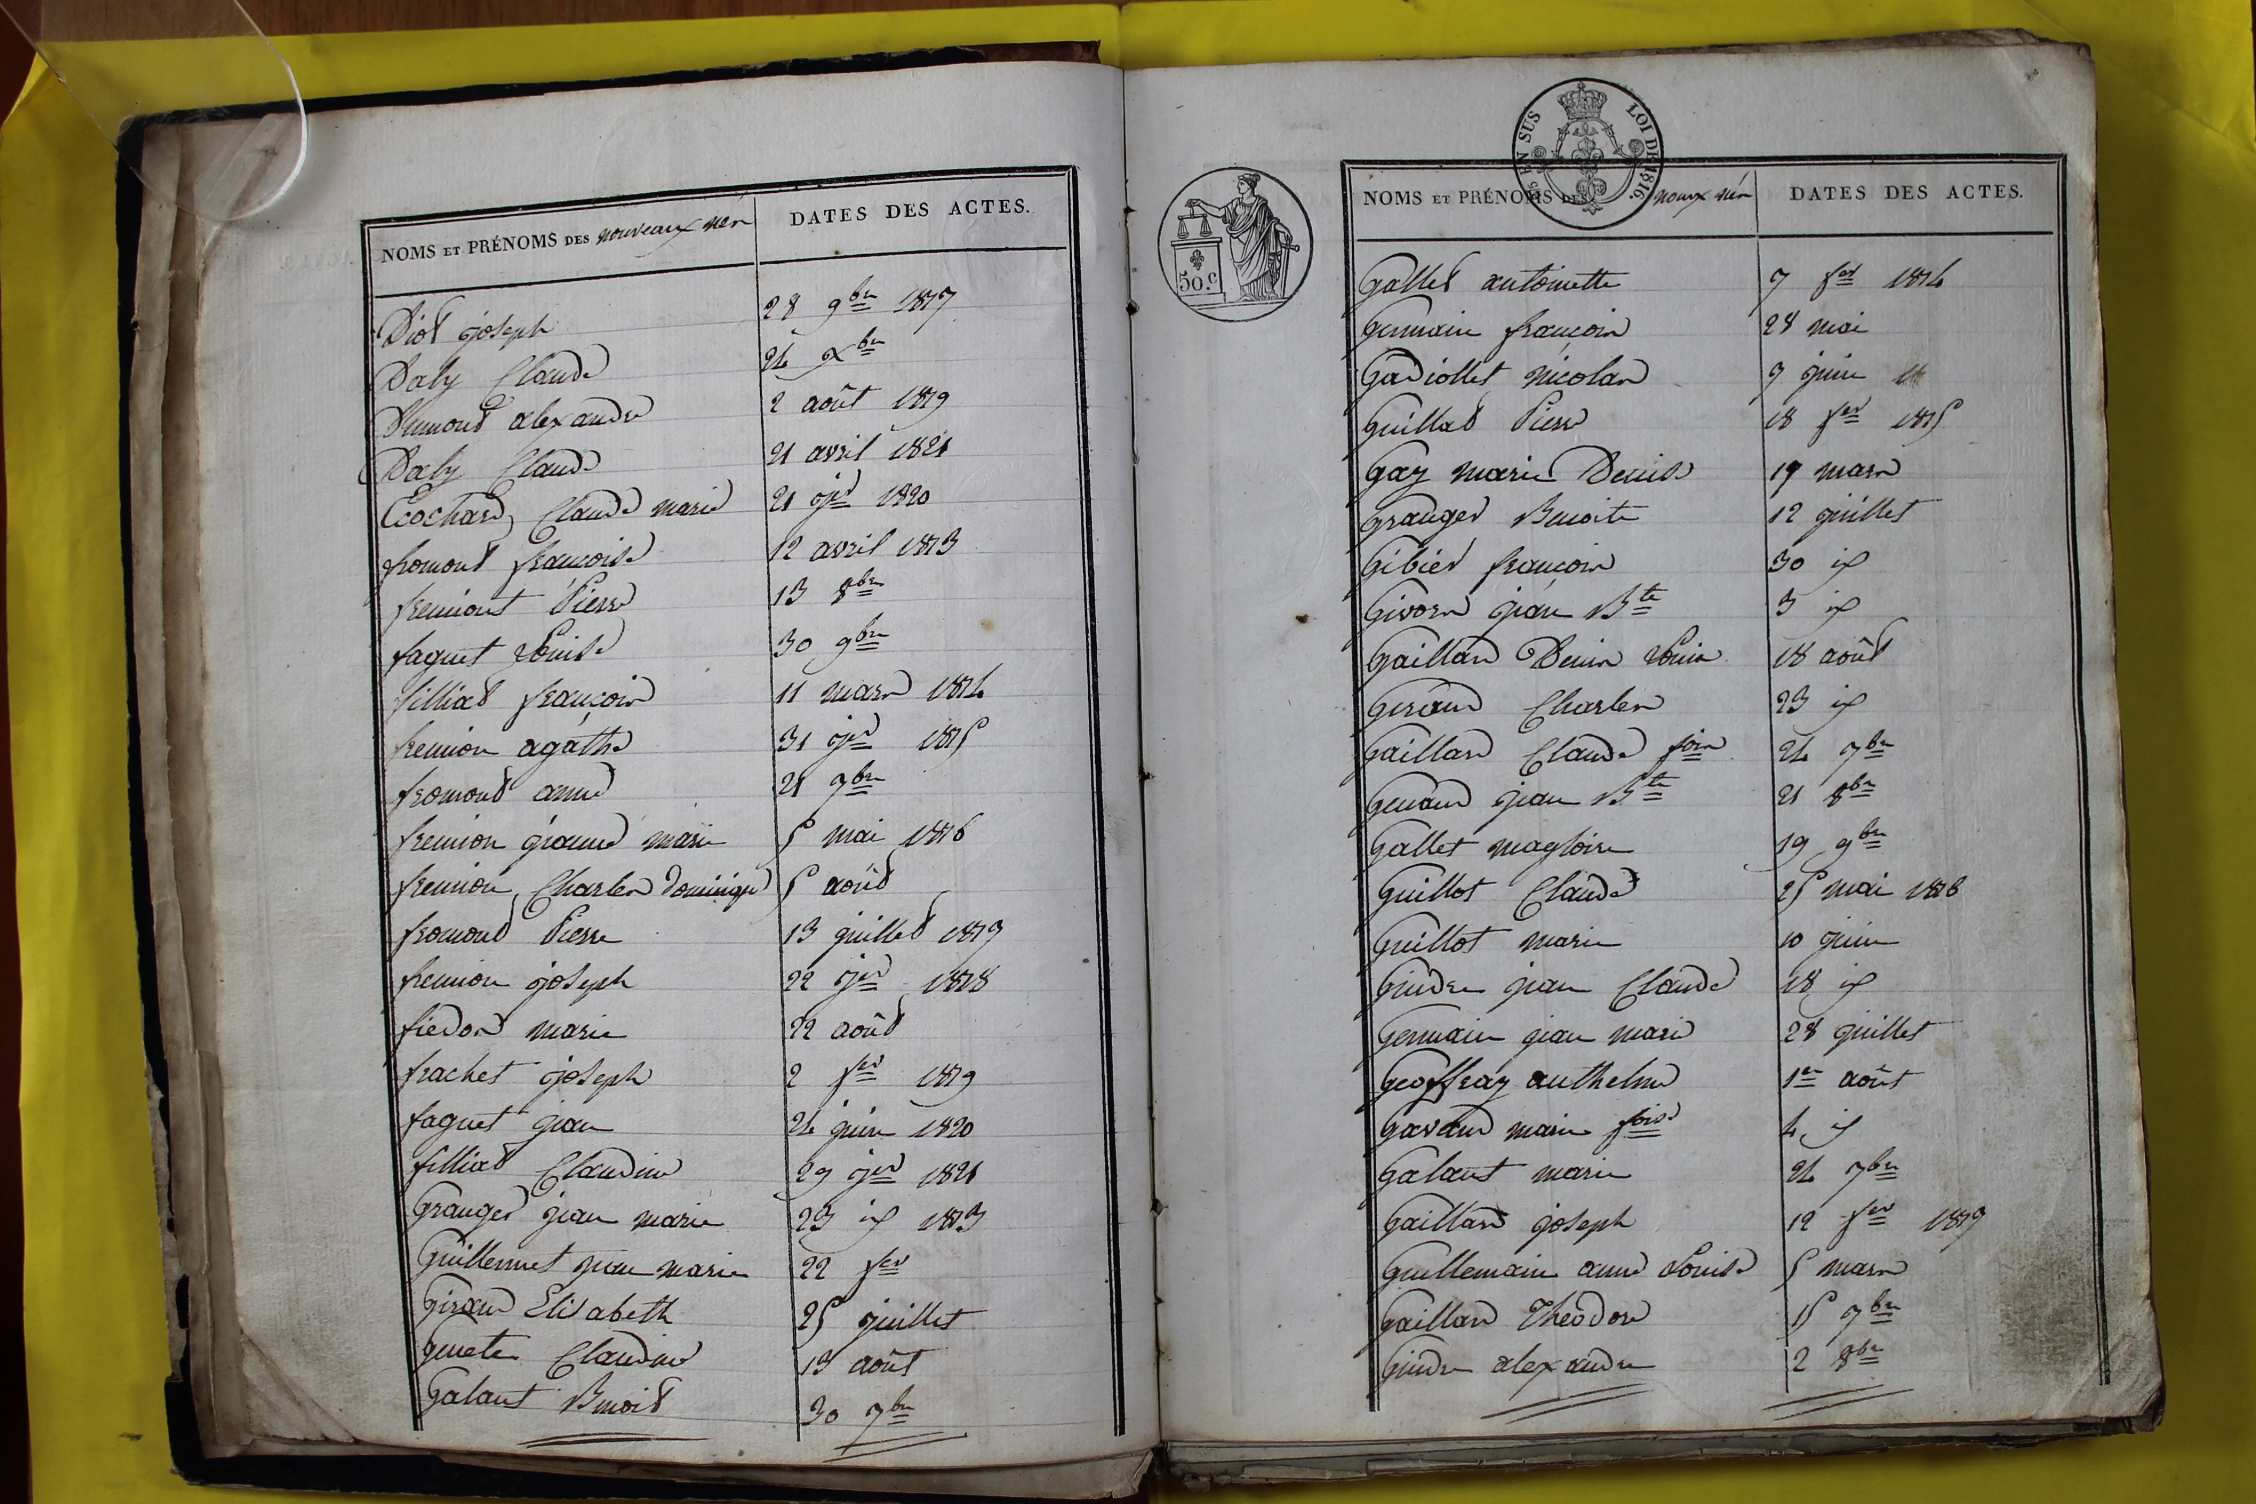 NOMS ET PRÉNOMS DES nouveaux nés DATES DES ACTES.
Diot joseph 28 9bre 1817
Daly Claude 24 Xbre
Dumont alexandre 2 août 1819
Daly Claude 21 avril 1821
Ecochard Claude marie 21 jer 1820
fromont françoise 12 avril 1813
fremiont Pierre 13 8bre
faguet Louise 30 9bre
filliat françois 11 mars 1814
fremion agathe 31 jer 1815
fromont anne 21 7bre
fremion jeanne marie 5 mai 1816
fremion Charles dominique 5 août
fromont Pierre 13 juillet 1819
fremion joseph 22 jer 1818
fiedor marie 22 août
frachet joseph 2 fer 1819
faguet jean 24 juin 1820
filliat Claudine 29 jer 1821
Granger jean marie 23 id 1813
Guillermet jean marie 22 fer
Giraud Elisabeth 25 juillet
Claudine 13 août
Galant Benoit 30 7bre
EN SUS LOI DE 1816
50.c
NOMS ET PRÉNOMS DES nouvx nés DATES DES ACTES.
Gallet antoinette 7 fer 1814
Germain françois 28 mai
Gadiollet nicolas 9 juin
Guillat Pierre 18 fer 1815
Gay marie Denise 19 mars
Granger Benoite 12 juillet
Gibier françois 30 id
Givors jean Bte 3 id
Gaillard Denis Louis 18 août
Geraud Charles 23 id
Gaillard Claude fois 24 7bre
Genaud jean Bte 21 8bre
Gallet magloire 19 9bre
Guillot Claude 25 mai 1818
Guillot marie 10 juin
Guidre jean Claude 18 id
Germain jean marie 28 juillet
Geoffray anthelme 1er août
Gavand marie foise 4 id
Galant marie 24 7bre
Gaillard joseph 12 fer 1819
Guillemain anne Louise 5 mars
Gaillard Théodore 15 7bre
Guidre alexandre 2 8bre